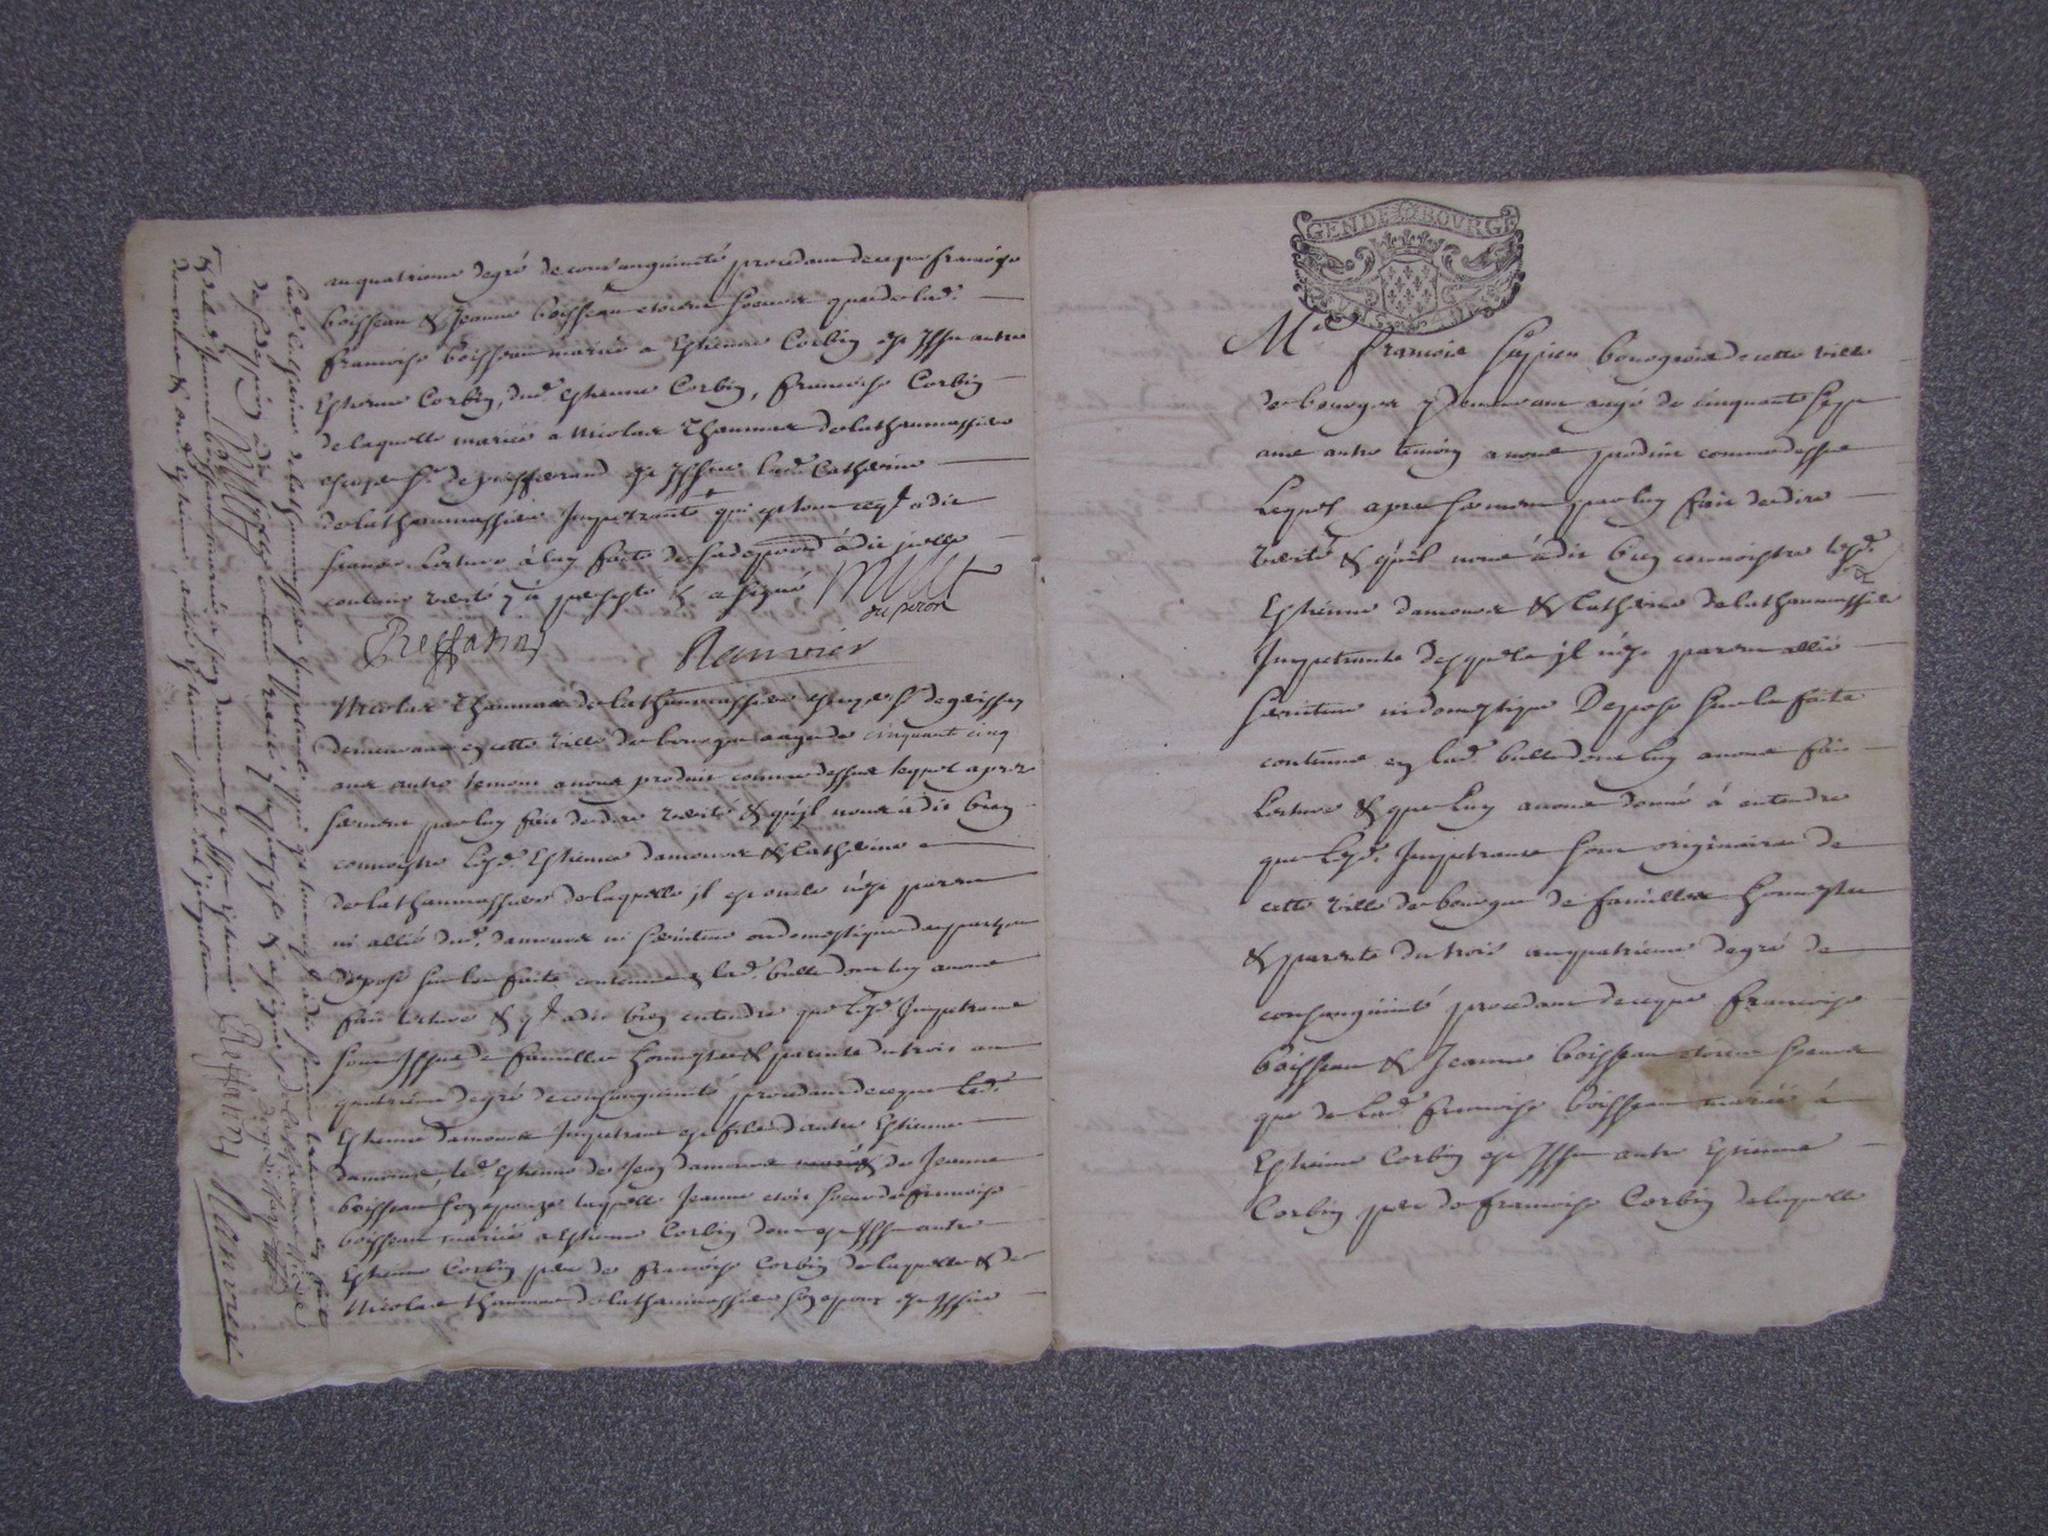 au quatrieme degré de consanguinité procedant de ce que francoise
boisseau & Jeanne boisseau etoient soeurs que de lad.
francoise boisseau mariée a Estienne Corbin est Issu autre
Estienne Corbin, dud. Estienne Corbin, francoise Corbin
de laquelle mariée a Nicolas Thaumas de la thaumassiere
escuyer Sr. de est Issue lad. Catherine
de la thaumassiere Impetrante qui est tout ce a dit
scavoir Lecture à luy faite de sa deposition à dit jcelle
contenir verité y a persisté & a signé Milet
du peron
Reffatin
Ranvier
Nicolas Thaumas de la thaumassiere escuyer Sr. de
demeurant en cette ville de bourges aagé de cinquant cinq
ans autre temoin a nous produit comme dessus lequel apres
serment par luy fait de dire verité & qu'jl nous a dit bien
connoistre lesd. Estienne damours & Catherine
de la thaumassiere de laquelle jl est oncle n'est parent
ni allié dud. damours ni serviteur ou domestique des parties
depose sur les faits contenus en lad. bulle dont luy avons
fait lecture & a dit bien entendre que lesd. Impetrans
sont Issus de familles honnestes & parents du trois au
quatrieme degré de consanguinité procedant de ce que led.
Estienne damours Impetrant est fils d'autre Estienne
damours, led. Estienne de Jean damours & de Jeanne
boisseau son epouze laquelle Jeanne etoit soeur de francoise
boisseau mariée a Estienne Corbin dont est Issu autre
Estienne Corbin pere de francoise Corbin de laquelle & de
Nicolas thaumas de la thaumassiere son epoux est Issue
lad. Catherine de la thaumassiere Impetrante qui est tout ce a dit scavoir lecture à luy faite
de sa deposition a dit icelle contenir verité y a persisté & a signé de la Thaumassiere
Reffatin Ranvier
& de lad. Jeanne boisseau mariée a Jean damours est Issu Estienne
damours & dud. Estienne, autre Estienne
GEN DE BOVRGE
Me francois bourgeois de cette ville
de bourges y demeurant aagé de cinquante sept
ans autre temoin a nous produit comme dessus
Lequel apres serment par luy fait de dire
verité & qu'il nous à dit bien connoistre lesd.
Estienne damours & Catherine de la thaumassiere
Impetrants desquels jl n'est parent allié
serviteur ni domestique Depose sur les faits
contenus en lad. bulle dont luy avons fait
Lecture & que luy avons donné à entendre
que lesd. Impetrans sont originaires de
cette ville de bourges de familles honnestes
& parents du trois au quatrieme degré de
consanguinité procedant de ce que francoise
boisseau & Jeanne boisseau etoient soeurs
que de lad. francoise boisseau mariée à
Estienne Corbin est Issu autre Estienne
Corbin pere de francoise Corbin de laquelle